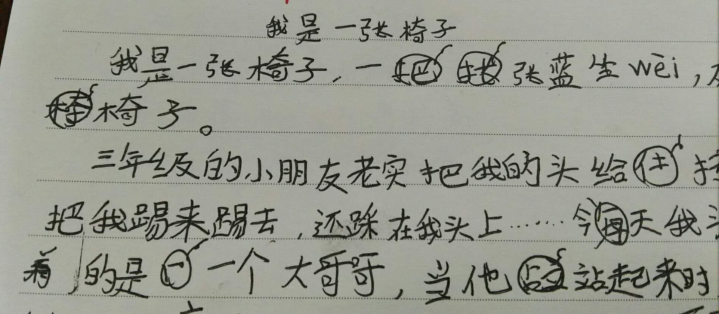 我是一张椅子
我是一张椅子，一张蓝坐wèi，
椅子。
三年级的小朋友老实把我的头给
把我踢来踢去，还踩在我头上……今天我
着的是一个大哥哥，当他站起来时